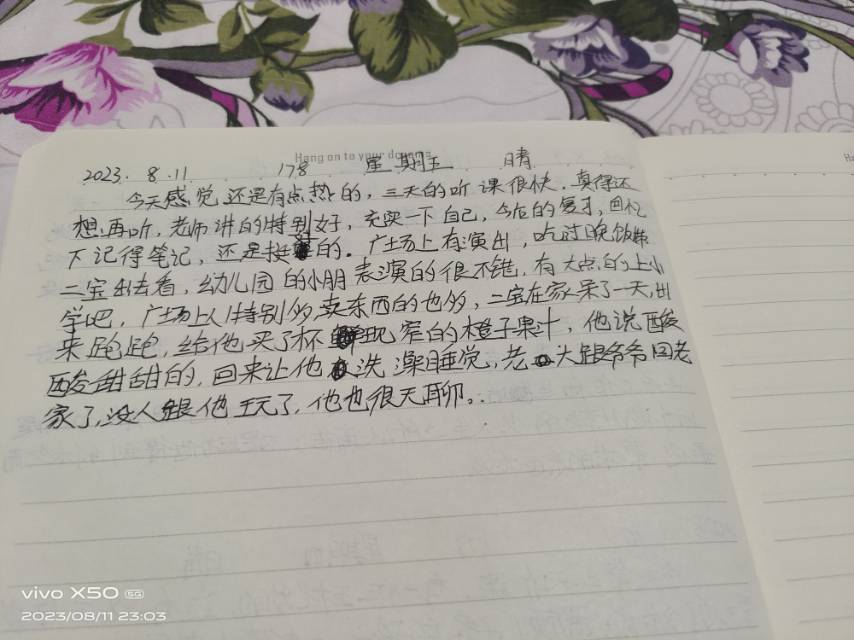 Hang on to your dreams
2023. 8.11 178 星期五 晴
今天感觉还是有点热的，三天的听课很快，真得还
想再听，老师讲的特别好，充实一下自己，今后的复习，回忆
下记得笔记，还是挺的。广场上有演出，吃过晚饭带
二宝出去看，幼儿园的小朋表演的很不错，有大点的上小
学吧，广场上人特别多，卖东西的也多，二宝在家呆了一天，出
来跑跑，给他买了杯现窄的橙子果汁，他说酸
酸甜甜的，回来让他洗澡睡觉，老大跟爷爷回老
家了，没人跟他玩了，他也很无聊。
vivo X50 5G
2023/08/11 23:03